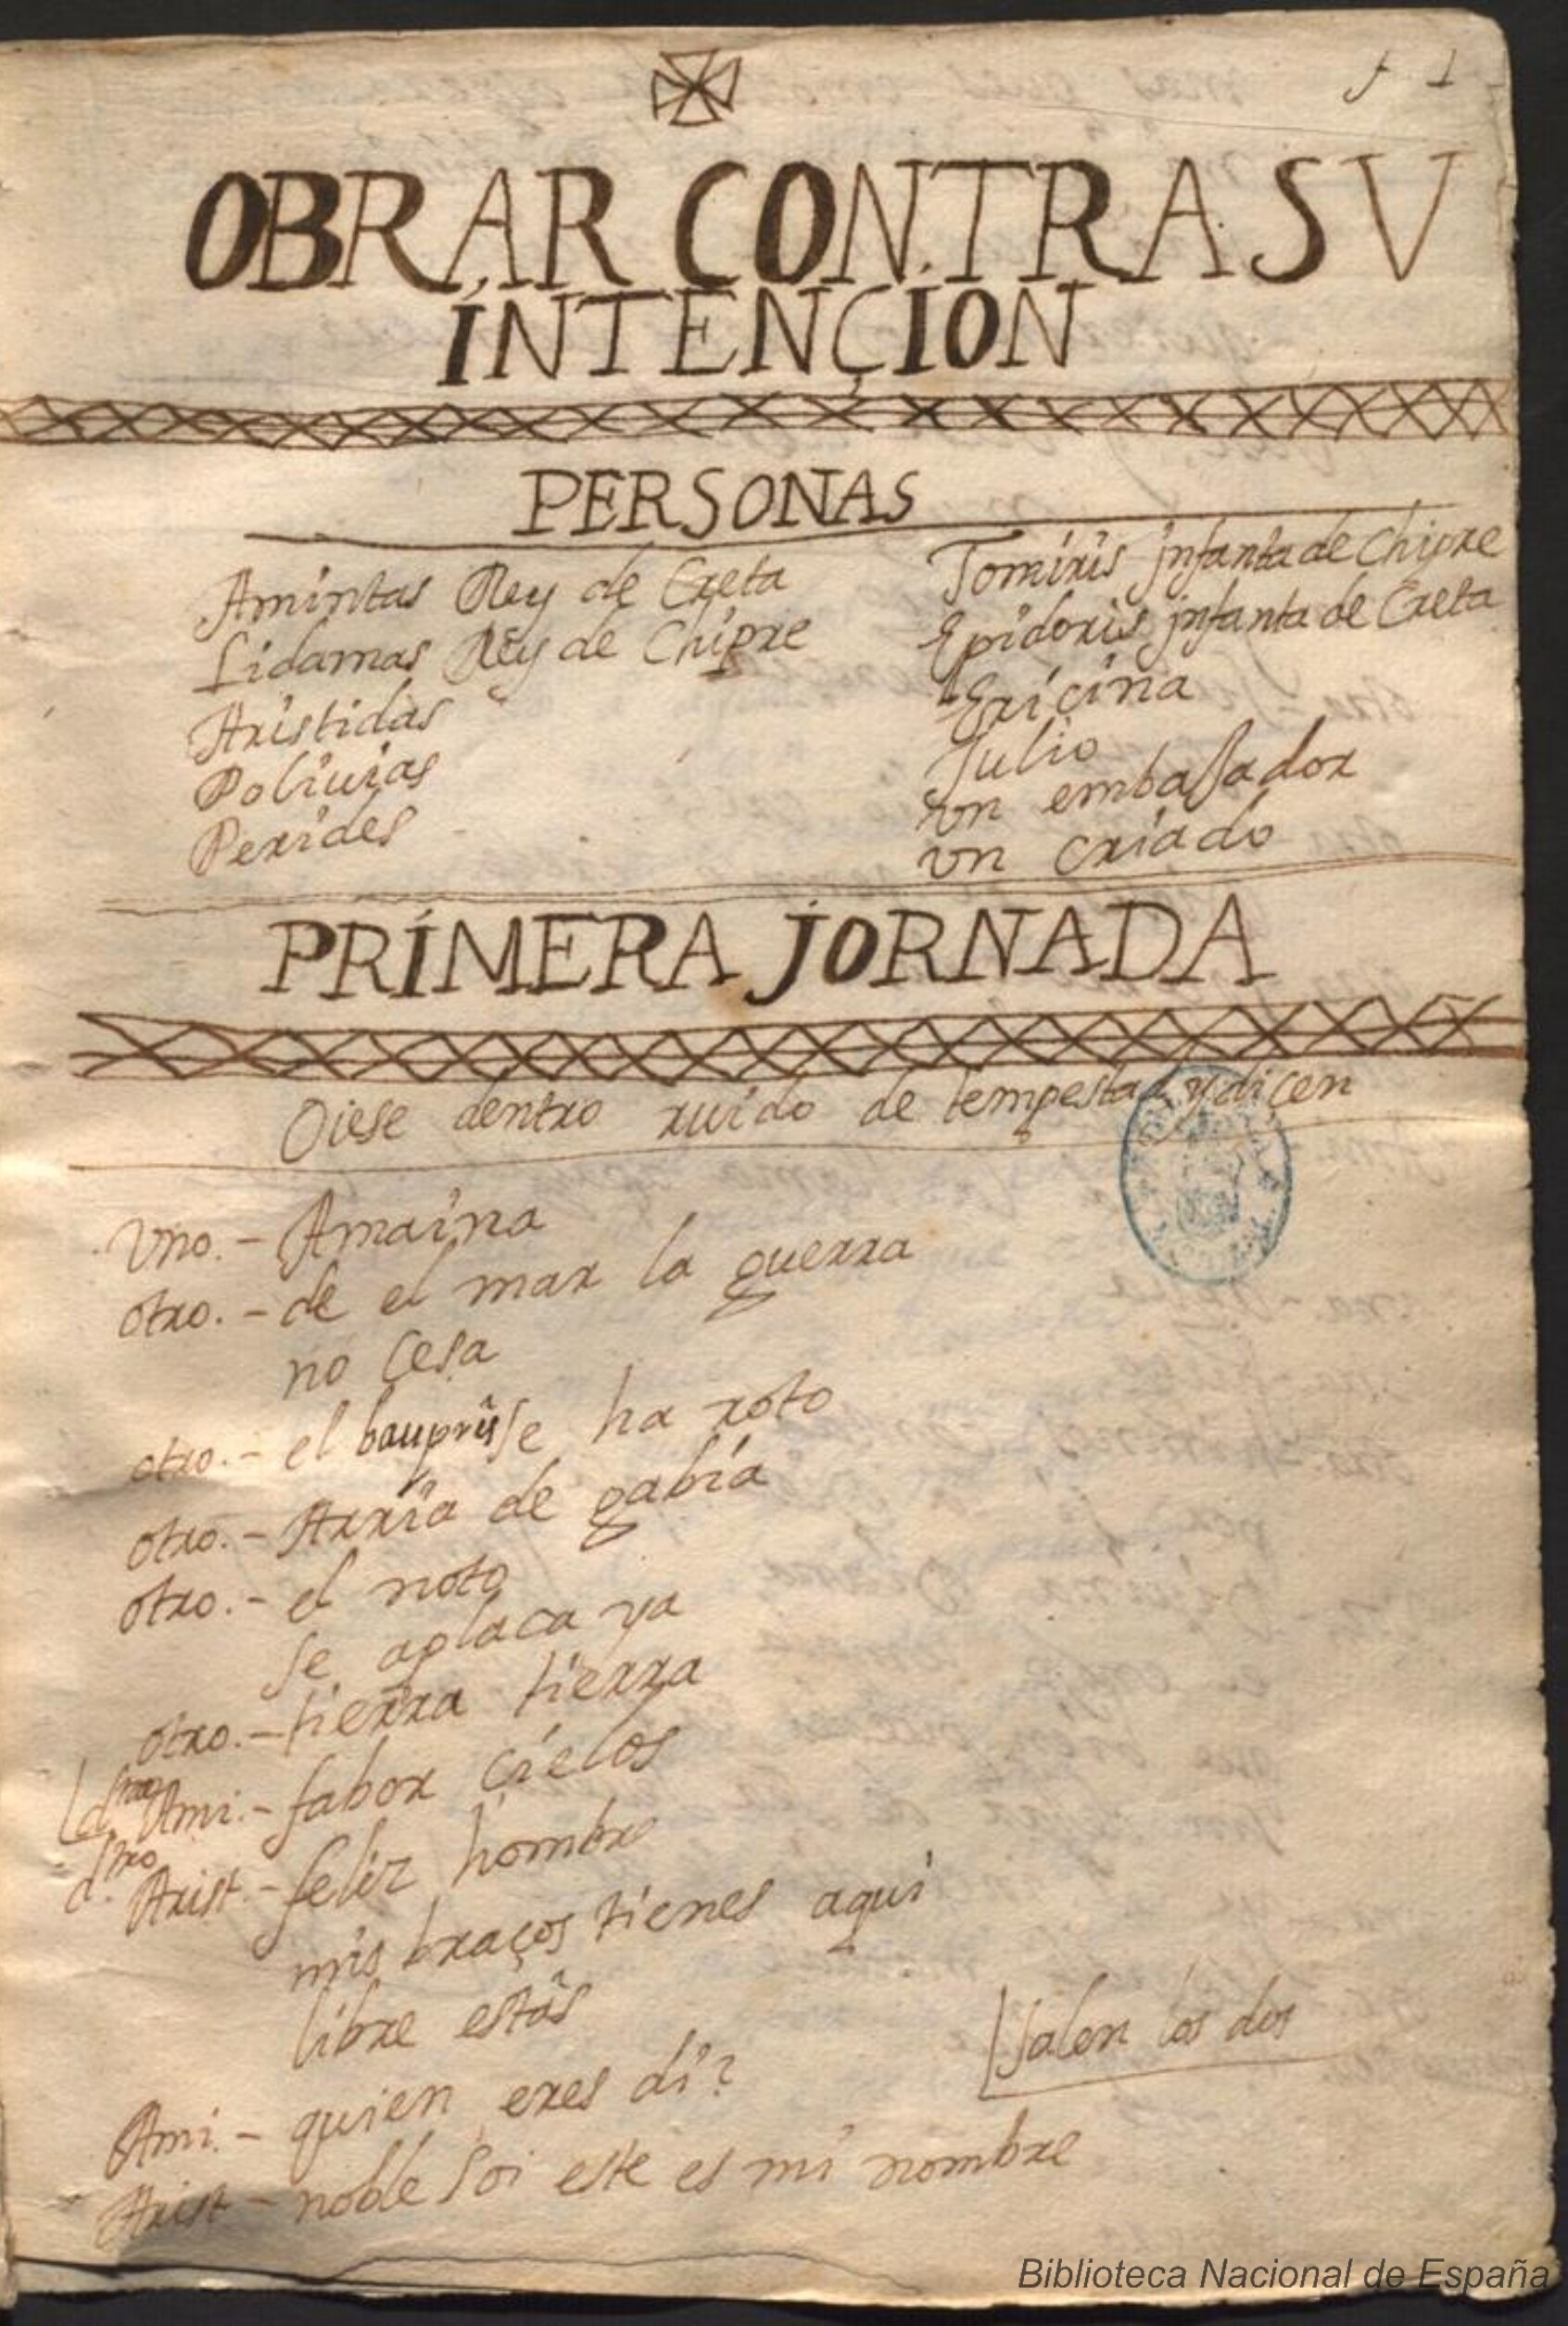 f 1
OBRAR CONTRA SV
INTENÇION
PERSONAS
Amintas Rey de Creta
Lidamas Rey de Chipre
Aristidas
Poliuias
Perides
Tomiris jnfanta de Chipre
Epidoris jnfanta de Creta
Ericina
Julio
vn embassador
vn criado
PRIMERA JORNADA
Oiese dentro ruido de tempestad y diçen
Vno.- Amaina
otro.- de el mar la guerra
no çesa
otro.- el bauprés se ha roto
otro.- Arria de gabia
otro.- el noto
se aplaca ya
otro.- tierra tierra
dtro Ami.- fabor çielos
dtro Arist.- feliz hombre
mis braços tienes aqui
libre estás
salen los dos
Ami.- quien eres di?
Arist- noble soi este es mi nombre
Biblioteca Nacional de España